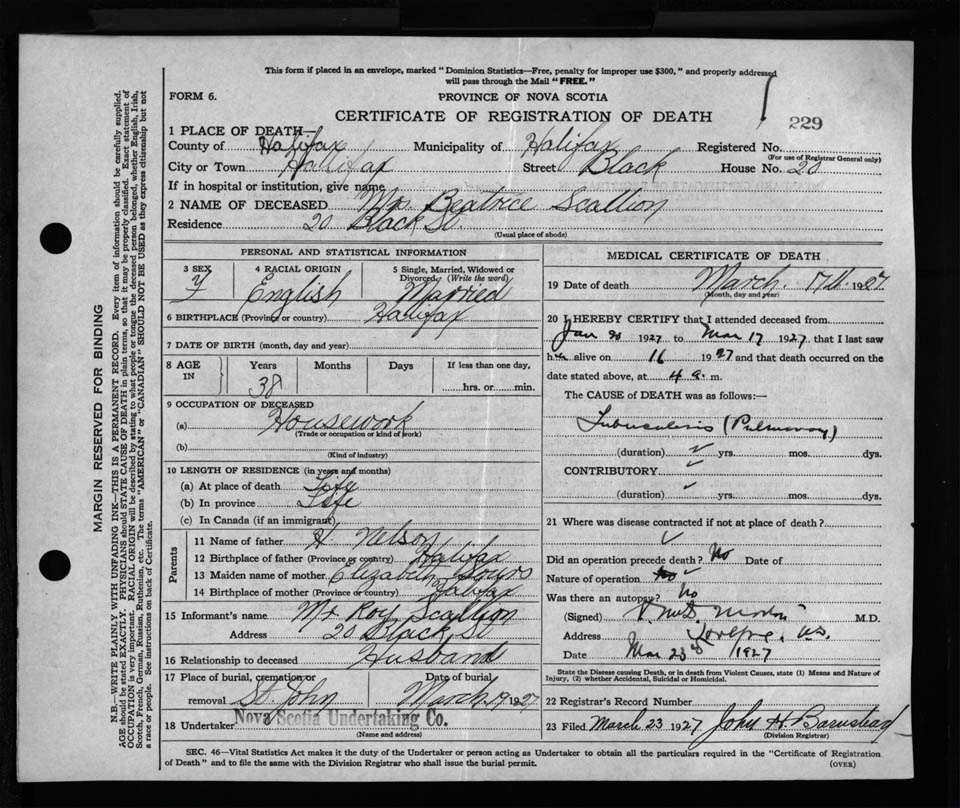 This form if placed in an envelope, marked "Dominion Statistics—Free, penalty for improper use $300," and properly addressed
will pass through the Mail "FREE."
FORM 6.
PROVINCE OF NOVA SCOTIA
CERTIFICATE OF REGISTRATION OF DEATH
229
1 PLACE OF DEATH—
County of Halifax Municipality of Halifax Registered No.
(For use of Registrar General only)
City or Town Halifax Street Black House No. 20
If in hospital or institution, give name
2 NAME OF DECEASED Mrs. Beatrice Scallion
Residence 20 Black St.
(Usual place of abode)
PERSONAL AND STATISTICAL INFORMATION
3 SEX 4 RACIAL ORIGIN 5 Single, Married, Widowed or Divorced (Write the word)
F English Married
6 BIRTHPLACE (Province or country) Halifax
7 DATE OF BIRTH (month, day and year)
8 AGE IN Years Months Days If less than one day,
38 hrs. or min.
9 OCCUPATION OF DECEASED
(a) Housework
(Trade or occupation or kind of work)
(b)
(Kind of industry)
10 LENGTH OF RESIDENCE (in years and months)
(a) At place of death Life
(b) In province Life
(c) In Canada (if an immigrant)
Parents
11 Name of father H Nelson
12 Birthplace of father (Province or country) Halifax
13 Maiden name of mother Elizabeth
14 Birthplace of mother (Province or country) Halifax
15 Informant's name Mr Roy Scallion
Address 20 Black St
16 Relationship to deceased Husband
17 Place of burial, cremation or removal St. John Date of burial March 19 1927
18 Undertaker Nova Scotia Undertaking Co.
(Name and address)
MEDICAL CERTIFICATE OF DEATH
19 Date of death March 17th 1927
(Month, day and year)
20 I HEREBY CERTIFY that I attended deceased from
Jan 20 1927 to Mar 17 1927 that I last saw
her alive on 16 1927 and that death occurred on the
date stated above, at 4 a. m.
The CAUSE of DEATH was as follows:—
Tuberculosis (Pulmonary)
(duration) 2 yrs. mos. dys.
CONTRIBUTORY
(duration) yrs. mos. dys.
21 Where was disease contracted if not at place of death?
Did an operation precede death? No Date of
Nature of operation
Was there an autopsy? No
(Signed) M.D.
Address
Date Mar 23d 1927
State the Disease causing Death, or in death from Violent Causes, state (1) Means and Nature of
Injury, (2) whether Accidental, Suicidal or Homicidal.
22 Registrar's Record Number
23 Filed March 23 1927 John H Barnstead
(Division Registrar)
SEC. 46—Vital Statistics Act makes it the duty of the Undertaker or person acting as Undertaker to obtain all the particulars required in the "Certificate of Registration
of Death" and to file the same with the Division Registrar who shall issue the burial permit. (OVER)
MARGIN RESERVED FOR BINDING
N.B.—WRITE PLAINLY WITH UNFADING INK—THIS IS A PERMANENT RECORD. Every item of information should be carefully supplied.
AGE should be stated EXACTLY. PHYSICIANS should STATE CAUSE OF DEATH in plain terms, so that it may be properly classified. Exact statement of
OCCUPATION is very important. RACIAL ORIGIN will be described by stating to what people or tongue the deceased person belonged, whether English, Irish,
Scotch, French, German, Russian, Ruthenian, etc. The terms "AMERICAN" or "CANADIAN" SHOULD NOT BE USED as they express citizenship but not
a race or people. See instructions on back of Certificate.